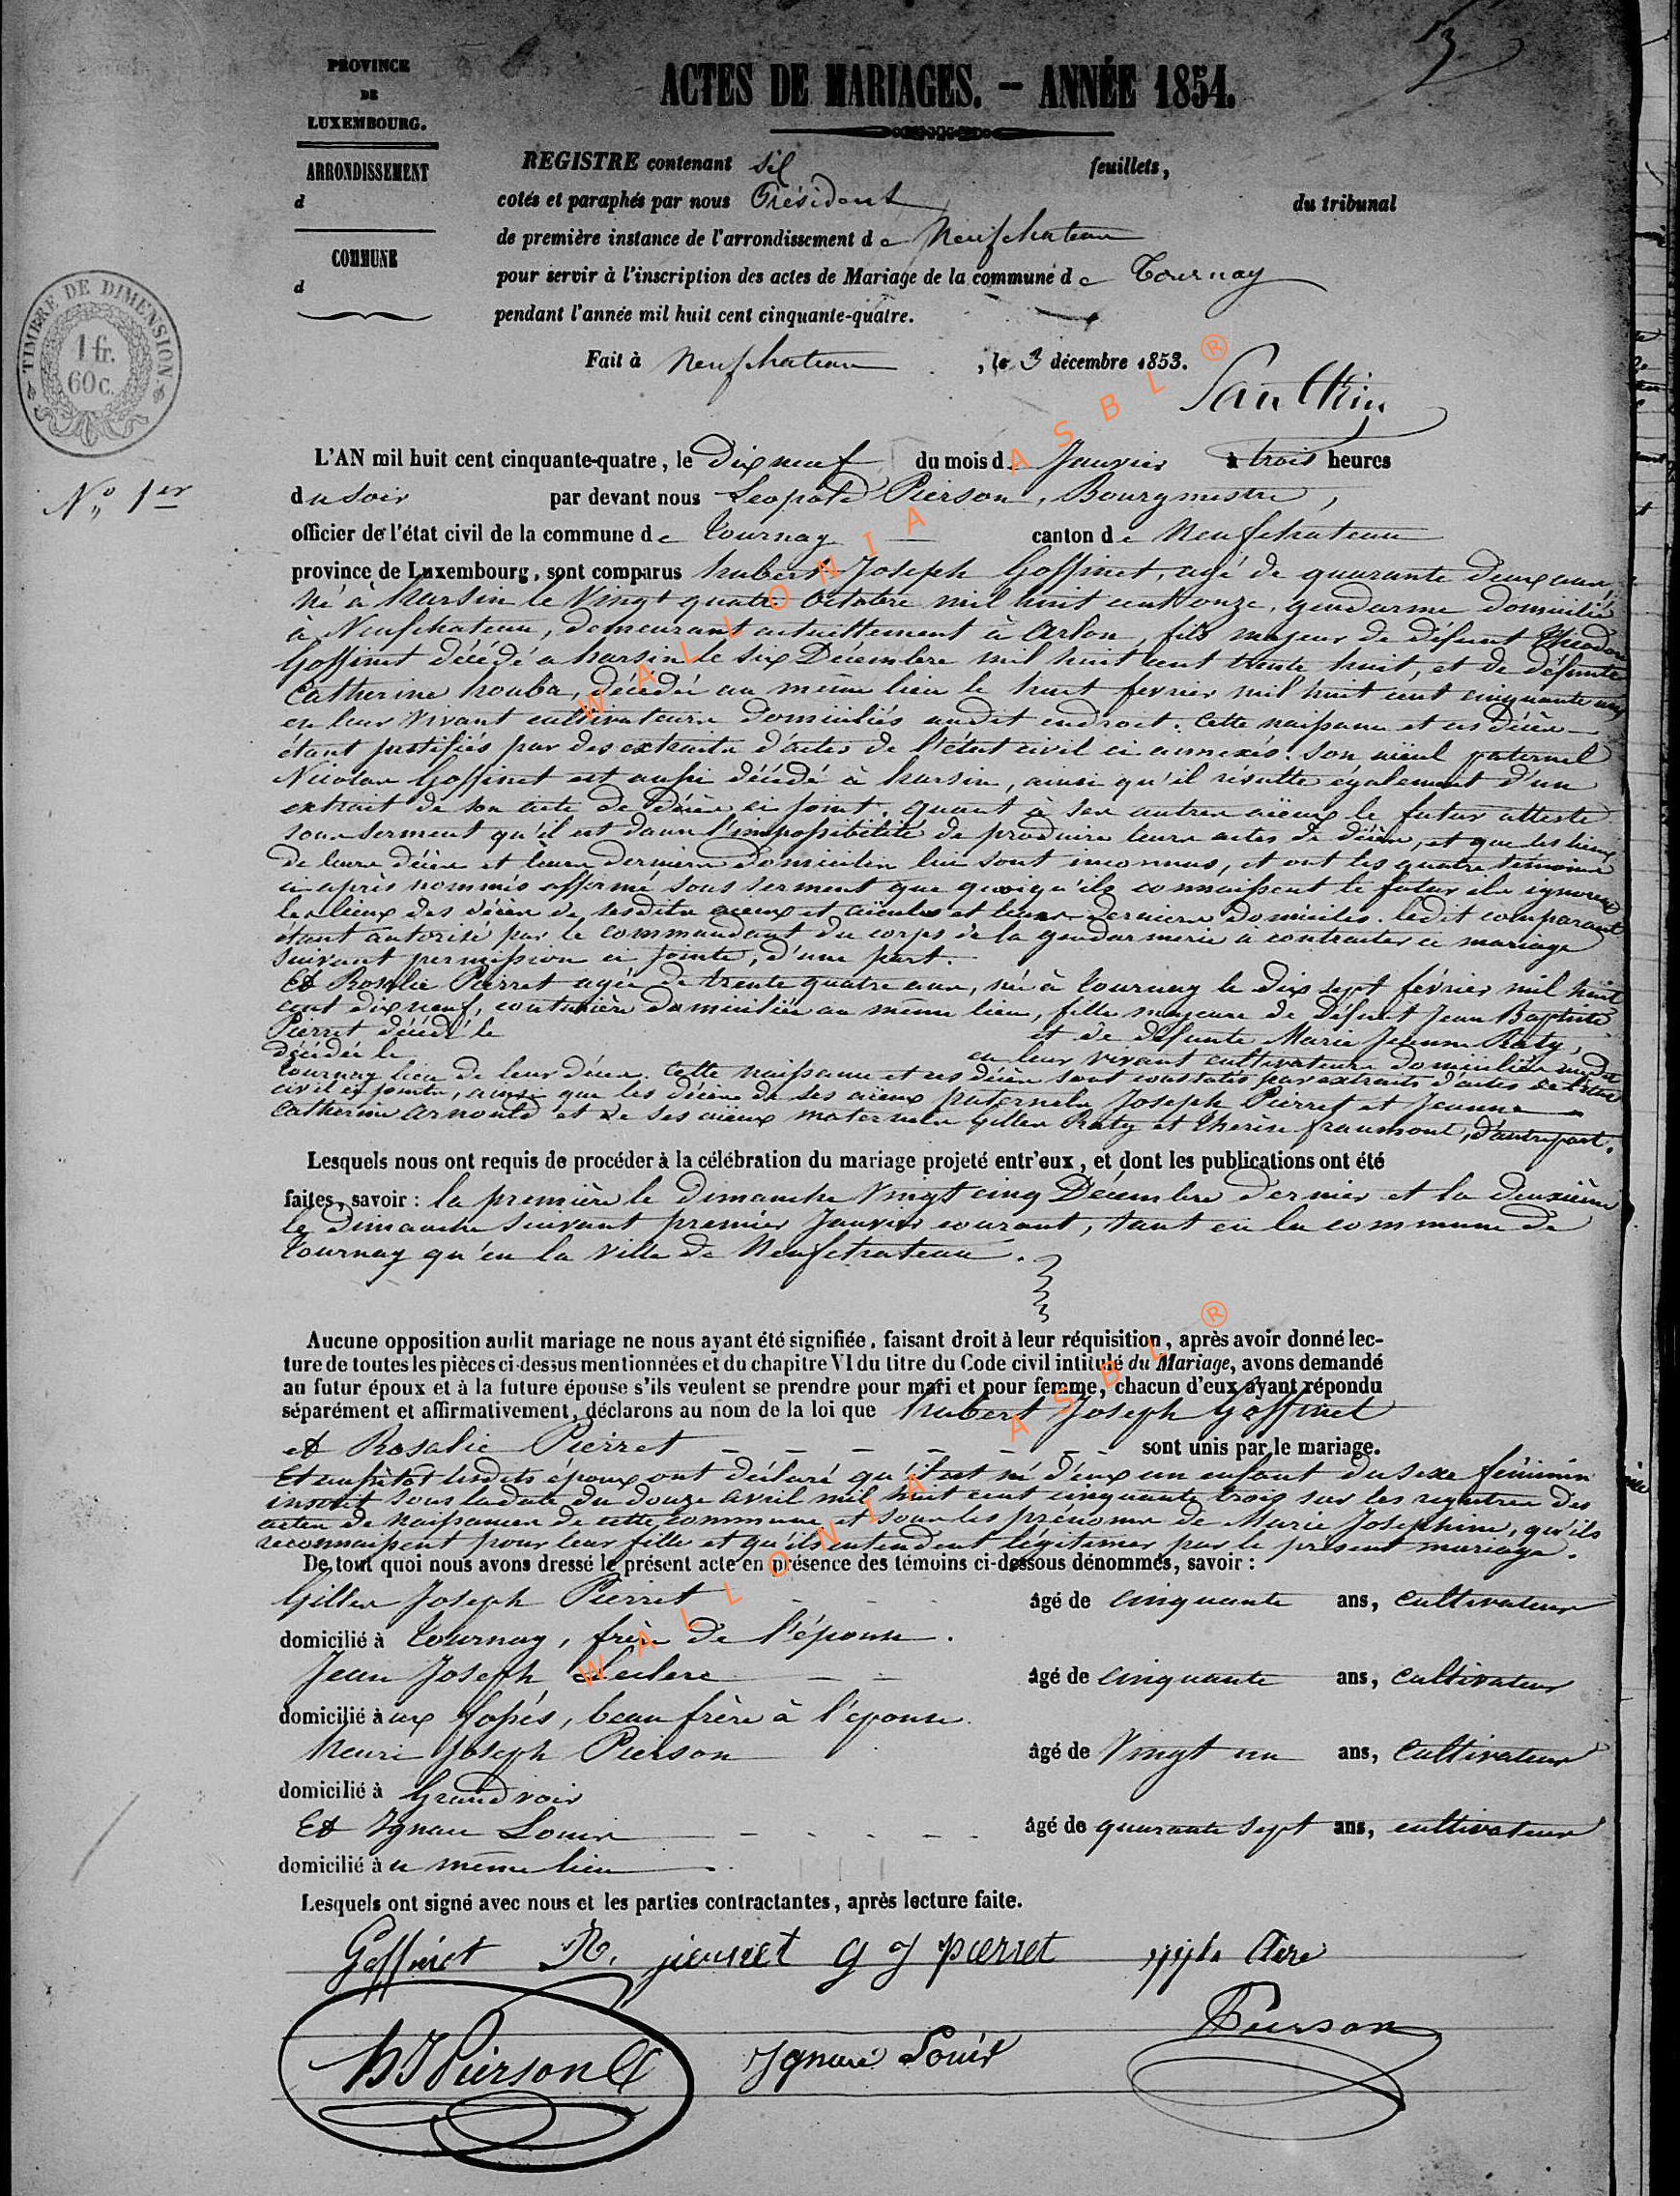 PROVINCE
DE
LUXEMBOURG.
ARRONDISSEMENT
d
COMMUNE
d
TIMBRE DE DIMENSION
1 fr.
60 c.
ACTES DE MARIAGES. — ANNÉE 1854.
REGISTRE contenant six feuillets,
cotés et paraphés par nous Président du tribunal
de première instance de l'arrondissement de Neufchateau
pour servir à l'inscription des actes de Mariage de la commune de Tournay
pendant l'année mil huit cent cinquante-quatre.
Fait à Neufchateau, le 3 décembre 1853.
N° 1er
L'AN mil huit cent cinquante-quatre, le dix neuf du mois d Janvier à trois heures
du soir par devant nous Leopold Pierson, Bourgmestre,
officier de l'état civil de la commune de Tournay canton de Neufchateau
province de Luxembourg, sont comparus hubert Joseph Goffinet, agé de quarante deux ans,
né à harsin le Vingt quatre Octobre mil huit cent onze, gendarme domicilié
à Neufchateau, demeurant actuellement à Arlon, fils majeur de défunt Théodore
Goffinet décédé a harsin le six Décembre mil huit cent trente huit, et de défunte
Catherine houba, décédée au même lieu le huit fevrier mil huit cent cinquante un
en leur Vivant cultivateurs domiciliés audit endroit. Cette naissance et ces décès
étant justifiés par des extraits d'actes de l'état civil ci annexés. Son aïeul paternel
Nicolas Goffinet est aussi décédé à harsin, ainsi qu'il résulte également d'un
extrait de son acte de décès ci joint. quant à ses autres aïeux le futur atteste
sous serment qu'il est dans l'impossibilité de produire leurs actes de décès, et que les lieux
de leurs décès et leurs derniers domiciles lui sont inconnus, et ont les quatre témoins
ci après nommés affirmé sous serment que quoiqu'ils connaissent le futur ils ignorent
les lieux des décès de sesdits aïeux et aïeules et leurs derniers domiciles. ledit comparant
étant autorisé par le commandant du corps de la gendarmerie à contracter ce mariage
suivant permission ci jointe, d'une part.
Et Rosalie Pierret agée de trente quatre ans, née à Tournay le dix sept février mil huit
cent dix neuf, couturière domiciliée au même lieu, fille majeure de défunt Jean Baptiste
Pierret décédé le et de défunte Marie Jeanne Raty,
décédée le en leur vivant cultivateurs domiciliés audit
Tournay lieu de leur décès. Cette naissance et ces décès sont constatés par extraits d'actes de l'état
civil ci joints, ainsi que les décès de ses aïeux paternels Joseph Pierret et Jeanne
Catherine Arnould et de ses aïeux maternels Gilles Raty et Thérèse fraumont, d'autre part.
Lesquels nous ont requis de procéder à la célébration du mariage projeté entr'eux, et dont les publications ont été
faites, savoir : la première le dimanche Vingt cinq Décembre dernier et la deuxième
le dimanche suivant premier Janvier courant, tant en la commune de
Tournay qu'en la ville de Neufchateau.
Aucune opposition audit mariage ne nous ayant été signifiée, faisant droit à leur réquisition, après avoir donné lec-
ture de toutes les pièces ci-dessus mentionnées et du chapitre VI du titre du Code civil intitulé du Mariage, avons demandé
au futur époux et à la future épouse s'ils veulent se prendre pour mari et pour femme, chacun d'eux ayant répondu
séparément et affirmativement, déclarons au nom de la loi que hubert Joseph Goffinet
et Rosalie Pierret sont unis par le mariage.
Et aussitot lesdits époux ont déclaré qu'il est né d'eux un enfant du sexe féminin
inscrit sous la date du douze avril mil huit cent cinquante trois sur les registres des
actes de naissances de cette commune et sous les prénoms de Marie Josephine, qu'ils
reconnaissent pour leur fille et qu'ils entendent légitimer par le présent mariage.
De tout quoi nous avons dressé le présent acte en présence des témoins ci-dessous dénommés, savoir :
Gilles Joseph Pierret âgé de cinquante ans, cultivateur
domicilié à Tournay, frère de l'épouse.
Jean Joseph Leclere âgé de cinquante ans, cultivateur
domicilié à ux fossés, beau frère à l'épouse.
Henri Joseph Pierson âgé de Vingt un ans, cultivateur
domicilié à Grandvoir
Et Ignace Louis âgé de quarante sept ans, cultivateur
domicilié à u même lieu
Lesquels ont signé avec nous et les parties contractantes, après lecture faite.
Goffinet R. pierret G J pierret
HJPierson Ignace Louis Pierson
WALLONIA ASBL ®
WALLONIA ASBL ®